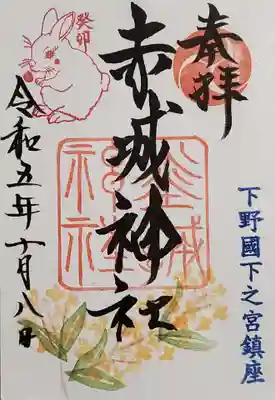 奉拝
赤城神社
下野國下之宮鎮座
癸卯
令和五年十月八日
赤城神社